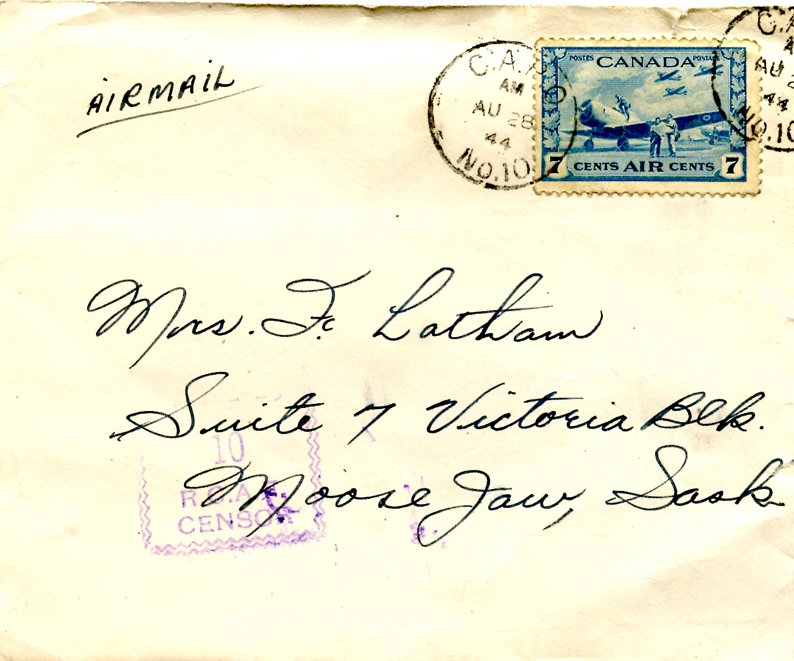 AIRMAIL
C.A.P.O
AM
AU 28
44
No.10
POSTES CANADA POSTAGE
7 CENTS AIR CENTS 7
AU 2
44
NO.10
Mrs. F. Latham
Suite 7 Victoria Blk.
Moose Jaw, Sask
10
R.C.A.F.
CENSOR